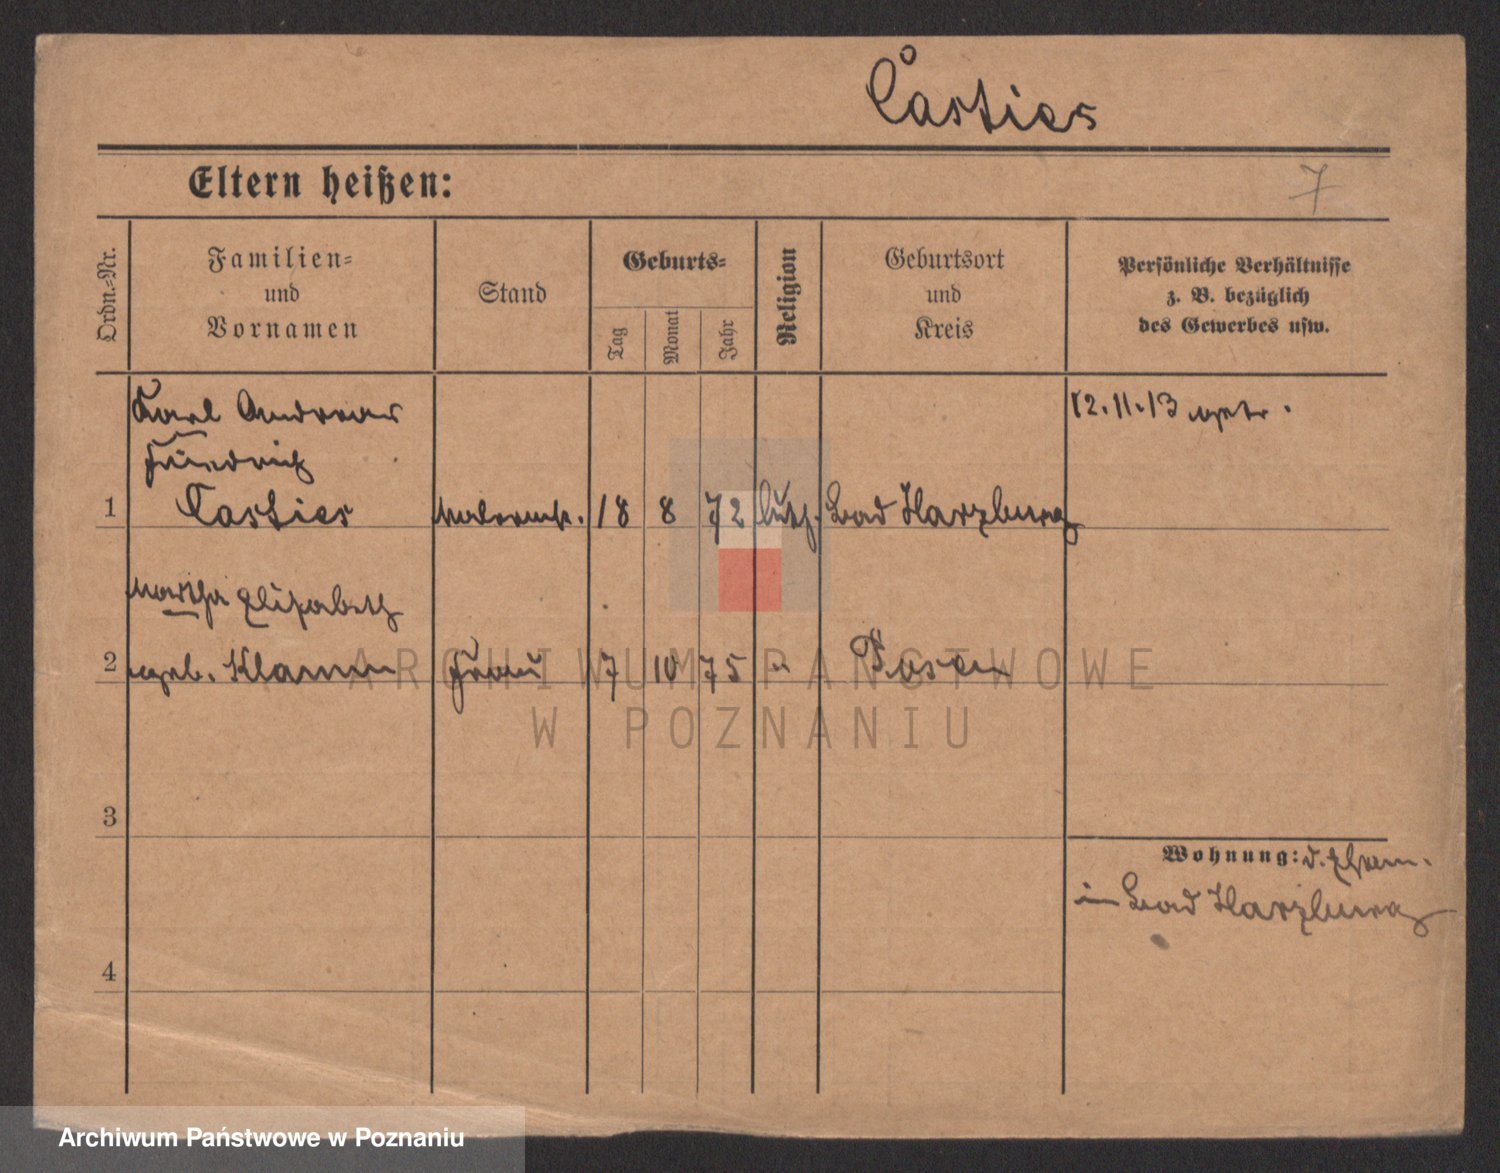 Casties
Eltern heißen:
7
Ordn.-Nr.
Familien-
und
Vornamen
Stand
Geburts-
Tag
Monat
Jahr
Religion
Geburtsort
und
Kreis
Persönliche Verhältnisse
z. B. bezüglich
des Gewerbes usw.
Karl Andreas
Friedrich
1 Casties 18 8 72 luth. Bad Harzburg
12.11.13 getr.
Martha Elisabeth
2 geb. Klamm Frau 7 10 75 " Posen
ARCHIWUM PAŃSTWOWE
W POZNANIU
3
Wohnung: d. Ehem.
in Bad Harzburg
4
Archiwum Państwowe w Poznaniu